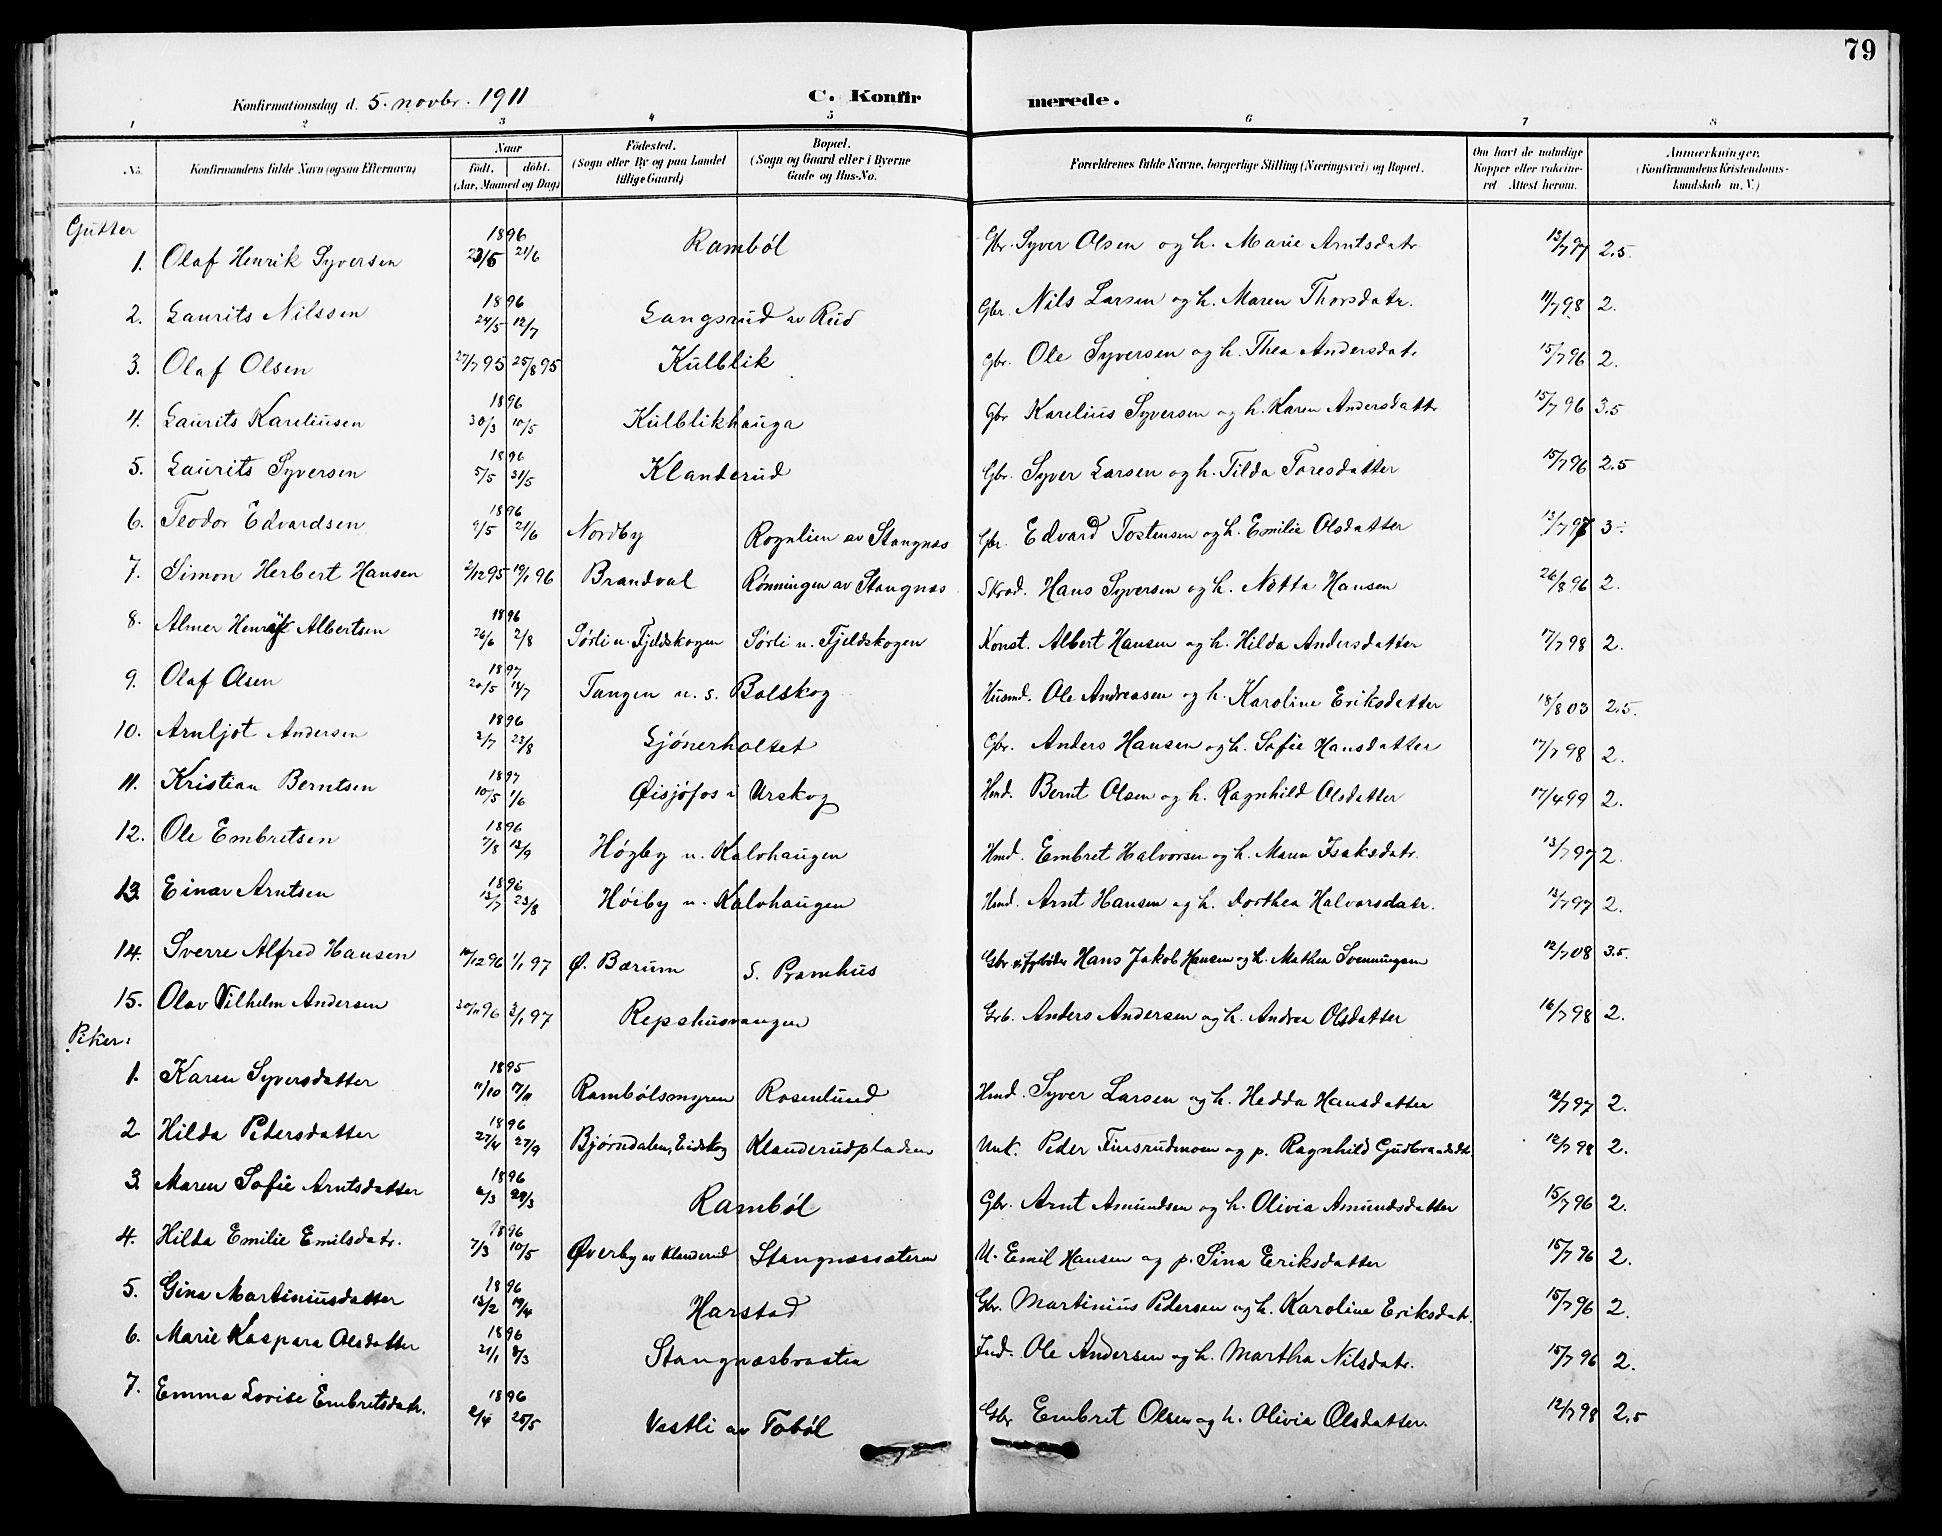 79
Konfirmationsdag d. 5. novbr. 1911 C. Konfirmerede.
1 2 3 4 5 6 7 8
No. Konfirmandens fulde Navn (ogsaa Efternavn) Naar Født. døbt. (Aar, Maaned og Dag) Fødested. (Sogn eller By og paa Landet tillige Gaard) Bopæl. (Sogn og Gaard eller i Byerne Gade og Hus-No. Forældrenes fulde Navne, borgerlige Stilling (Næringsvei) og Bopæl. Om havt de naturlige Kopper eller vaccineret Attest herom. Anmerkninger. (Konfirmandens Kristendomskundskab m. V.)
Gutter
1. Olaf Henrik Syversen 1896 23/5 21/6 Ramból Gbr. Syver Olsen og h. Marie Arntsdatr. 13/7 97 2.5.
2. Laurits Nilssen 1896 24/5 12/7 Langsrud av Rud Gbr. Nils Larsen og h. Maren Thorsdatr. 11/7 98 2.
3. Olaf Olsen 27/7 95 25/8 95 Kulblik Gbr. Ole Syversen og h. Thea Andersdatr 15/7 96 2.
4. Laurits Kareliusen 1896 30/3 10/5 Kulblikhauga Gbr Karelius Syversen og h. Karen Andersdattr 15/7 96 3.5
5. Laurits Syversen 1896 5/5 31/5 Klanderud Gbr. Syver Larsen og h. Tilda Toresdatter 15/7 96 2.5
6. Teodor Edvardsen 1896 9/5 21/6 Nordby Rognlien av Stangnæs Gbr. Edvard Tostensen og h. Emilie Olsdatter 13/7 97 3.
7. Simon Herbert Hansen 2/12 95 19/1 96 Brandval Rønningen av Stangnæs Skrad. Hans Syversen og h. Notta Hansen 26/8 96 2.
8. Almer Henrik Albertsen 1896 26/6 2/8 Sørli u. Fjeldskogen Sørli u. Fjeldskogen Konst. Albert Hansen og h. Hilda Andersdatter 17/7 98 2.
9. Olaf Olsen 1897 20/5 18/7 Tangen u. s. Bolskog Husmd. Ole Andreasen og h. Karoline Eriksdatter 18/8 03 2.5.
10. Arnljot Andersen 1896 2/7 23/8 Gjónerholtet Gbr. Anders Hansen og h. Sofie Hansdatter 17/7 98 2.
11. Kristian Berntsen 1897 10/5 1/6 Øisjófos i Urskog Hmd. Bernt Olsen og h. Ragnhild Olsdatter 17/4 99 2.
12. Ole Embretsen 1896 7/8 13/9 Høgby u. Kalvhaugen Hmd. Embret Halvorsen og h. Maren Isaksdatr. 13/7 97 2.
13. Einar Arntsen 1896 13/7 23/8 Hóiby u. Kalvhaugen Hmd. Arnt Hansen og h. Dorthea Halvorsdatr. 13/7 97 2.
14. Sverre Alfred Hansen 17/12 96 1/1 97 Ø. Bærum S. Pramhus Gbr. Hans Jakob Hansen og h. Mathea Svenningsen 12/7 08 3.5.
15. Olav Vilhelm Andersen 30/11 96 3/1 97 Repshusvangen Grb. Anders Andersen og h. Andrea Olsdatter 16/7 98 2.
Piker:
1. Karen Syversdatter 1895 11/10 17/11 Rambólsmyren Rosenlund Hmd. Syver Larsen og h. Hedda Hansdatter 12/7 97 2.
2. Hilda Pedersdatter 1896 27/4 27/9 Bjørndalen, Eidskog Klanderudpladsen Unk. Peder Finsrudmoen og p. Ragnhild Gudbrandsdt. 12/7 98 2.
3. Maren Sofie Arntsdatter 1896 6/3 29/3 Ramból Gbr. Arnt Amundsen og h. Olivia Amundsdatter 15/7 96 2.
4. Hilda Emilie Emilsdatr. 1896 7/3 10/5 Øverby av Klanderud Stangnæssæteren U. Emil Hansen og p. Sina Eriksdatter 15/7 96 2.
5. Gina Martiniusdatter 1896 13/2 19/4 Harstad Gbr. Martinius Pedersen og h. Karoline Eriksdatr. 15/7 96 2.
6. Marie Kaspara Olsdatter 1896 21/1 8/3 Stangnæsbraaten Ind. Ole Andersen og h. Martha Nilsdatr. 15/7 96 2.
7. Emma Lovise Embretsdatr. 1896 2/4 25/5 Vestli av Toból Gbr Embret Olsen og h. Olivia Olsdatter. 12/7 98 2.5